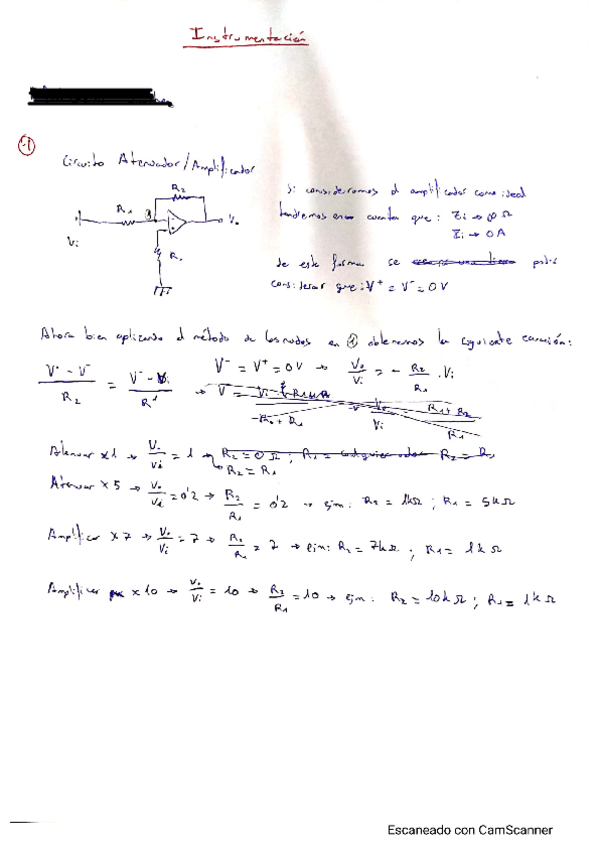 Instrumentación
1
Circuito Atenuador/Amplificador
R2
R1
1
Vo
Vi
R1
Si consideramos el amplificador como ideal
tendremos en cuenta que: Zi → ∞ Ω
Ii → 0 A
de este forma se podrá
considerar que: V+ = V- = 0 V
Ahora bien aplicando el método de los nodos en 1 obtenemos la siguiente ecuación:
Vo - V- / R2 = V- - Vi / R1
V- = V+ = 0V → Vo/Vi = - R2/R1 · Vi
Atenuar x1 → Vo/Vi = 1 → R2 = R1
Atenuar x 5 → Vo/Vi = 0'2 → R2/R1 = 0'2 → Ejm: R2 = 1kΩ ; R1 = 5kΩ
Amplificar x 7 → Vo/Vi = 7 → R2/R1 = 7 → Ejm: R2 = 7kΩ ; R1 = 1kΩ
Amplificar x 10 → Vo/Vi = 10 → R2/R1 = 10 → Ejm: R2 = 10kΩ ; R1 = 1kΩ
Escaneado con CamScanner